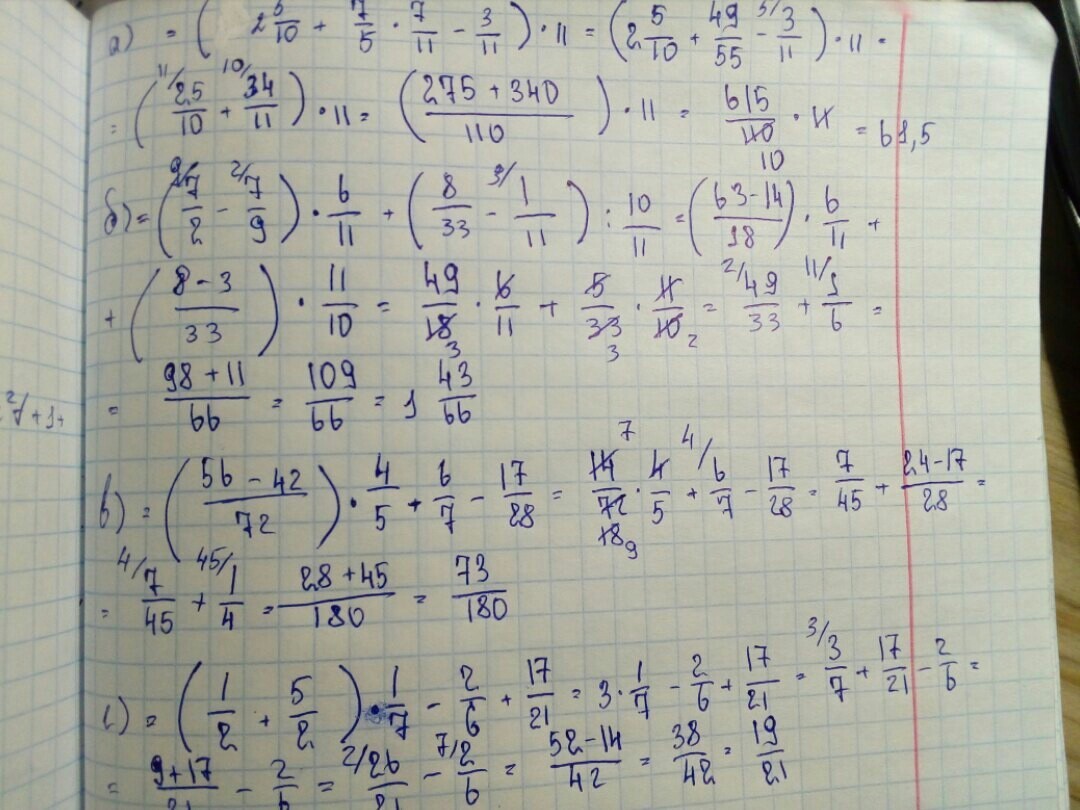 а) = (2 5/10 + 7/5 · 7/11 − 3/11) · 11 = (2 5/10 + 49/55 − 5/ 3/11) · 11 =
= (11/ 25/10 + 10/ 34/11) · 11 = (275 + 340)/110 · 11 = 615/110 · 11 = 61,5
10
б) = (9/ 7/2 − 2/ 7/9) · 6/11 + (8/33 − 3/ 1/11) : 10/11 = (63−14)/18 · 6/11 +
+ (8−3)/33 · 11/10 = 49/18 · 6/11 + 5/33 · 11/10 = 2/ 49/33 + 11/ 1/6 =
3 3 2
= (98 + 11)/66 = 109/66 = 1 43/66
в) = (56 − 42)/72 · 4/5 + 6/7 − 17/28 = 14/72 · 4/5 + 4/ 6/7 − 17/28 = 7/45 + (24−17)/28 =
7
18 9
= 4/ 7/45 + 45/ 1/4 = (28 + 45)/180 = 73/180
г) = (1/2 + 5/2) · 1/7 − 2/6 + 17/21 = 3 · 1/7 − 2/6 + 17/21 = 3/ 3/7 + 17/21 − 2/6 =
= (9+17)/21 − 2/6 = 2/ 26/21 − 7/ 2/6 = (52−14)/42 = 38/42 = 19/21